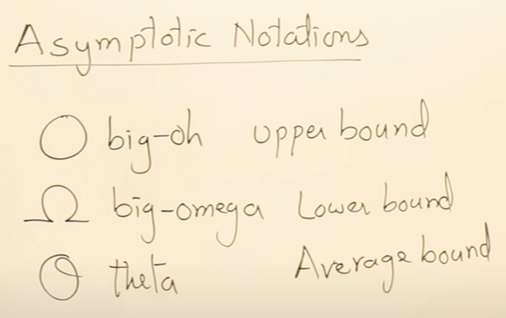 Asymptotic Notations
O big-oh upper bound
Ω big-omega Lower bound
θ theta Average bound